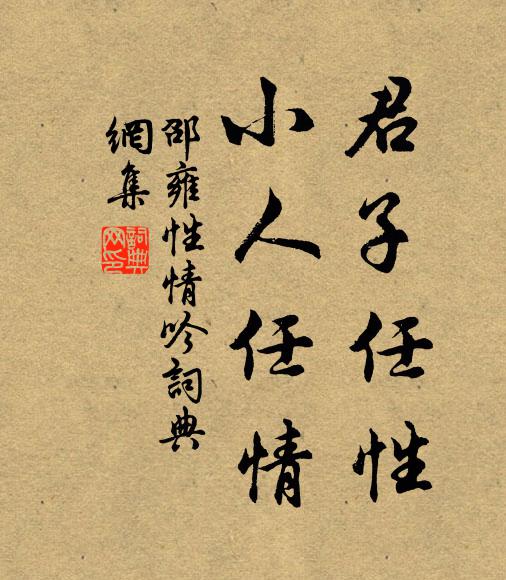 君子任性
小人任情
邵雍性情吟詞典
網集
詞典
网印